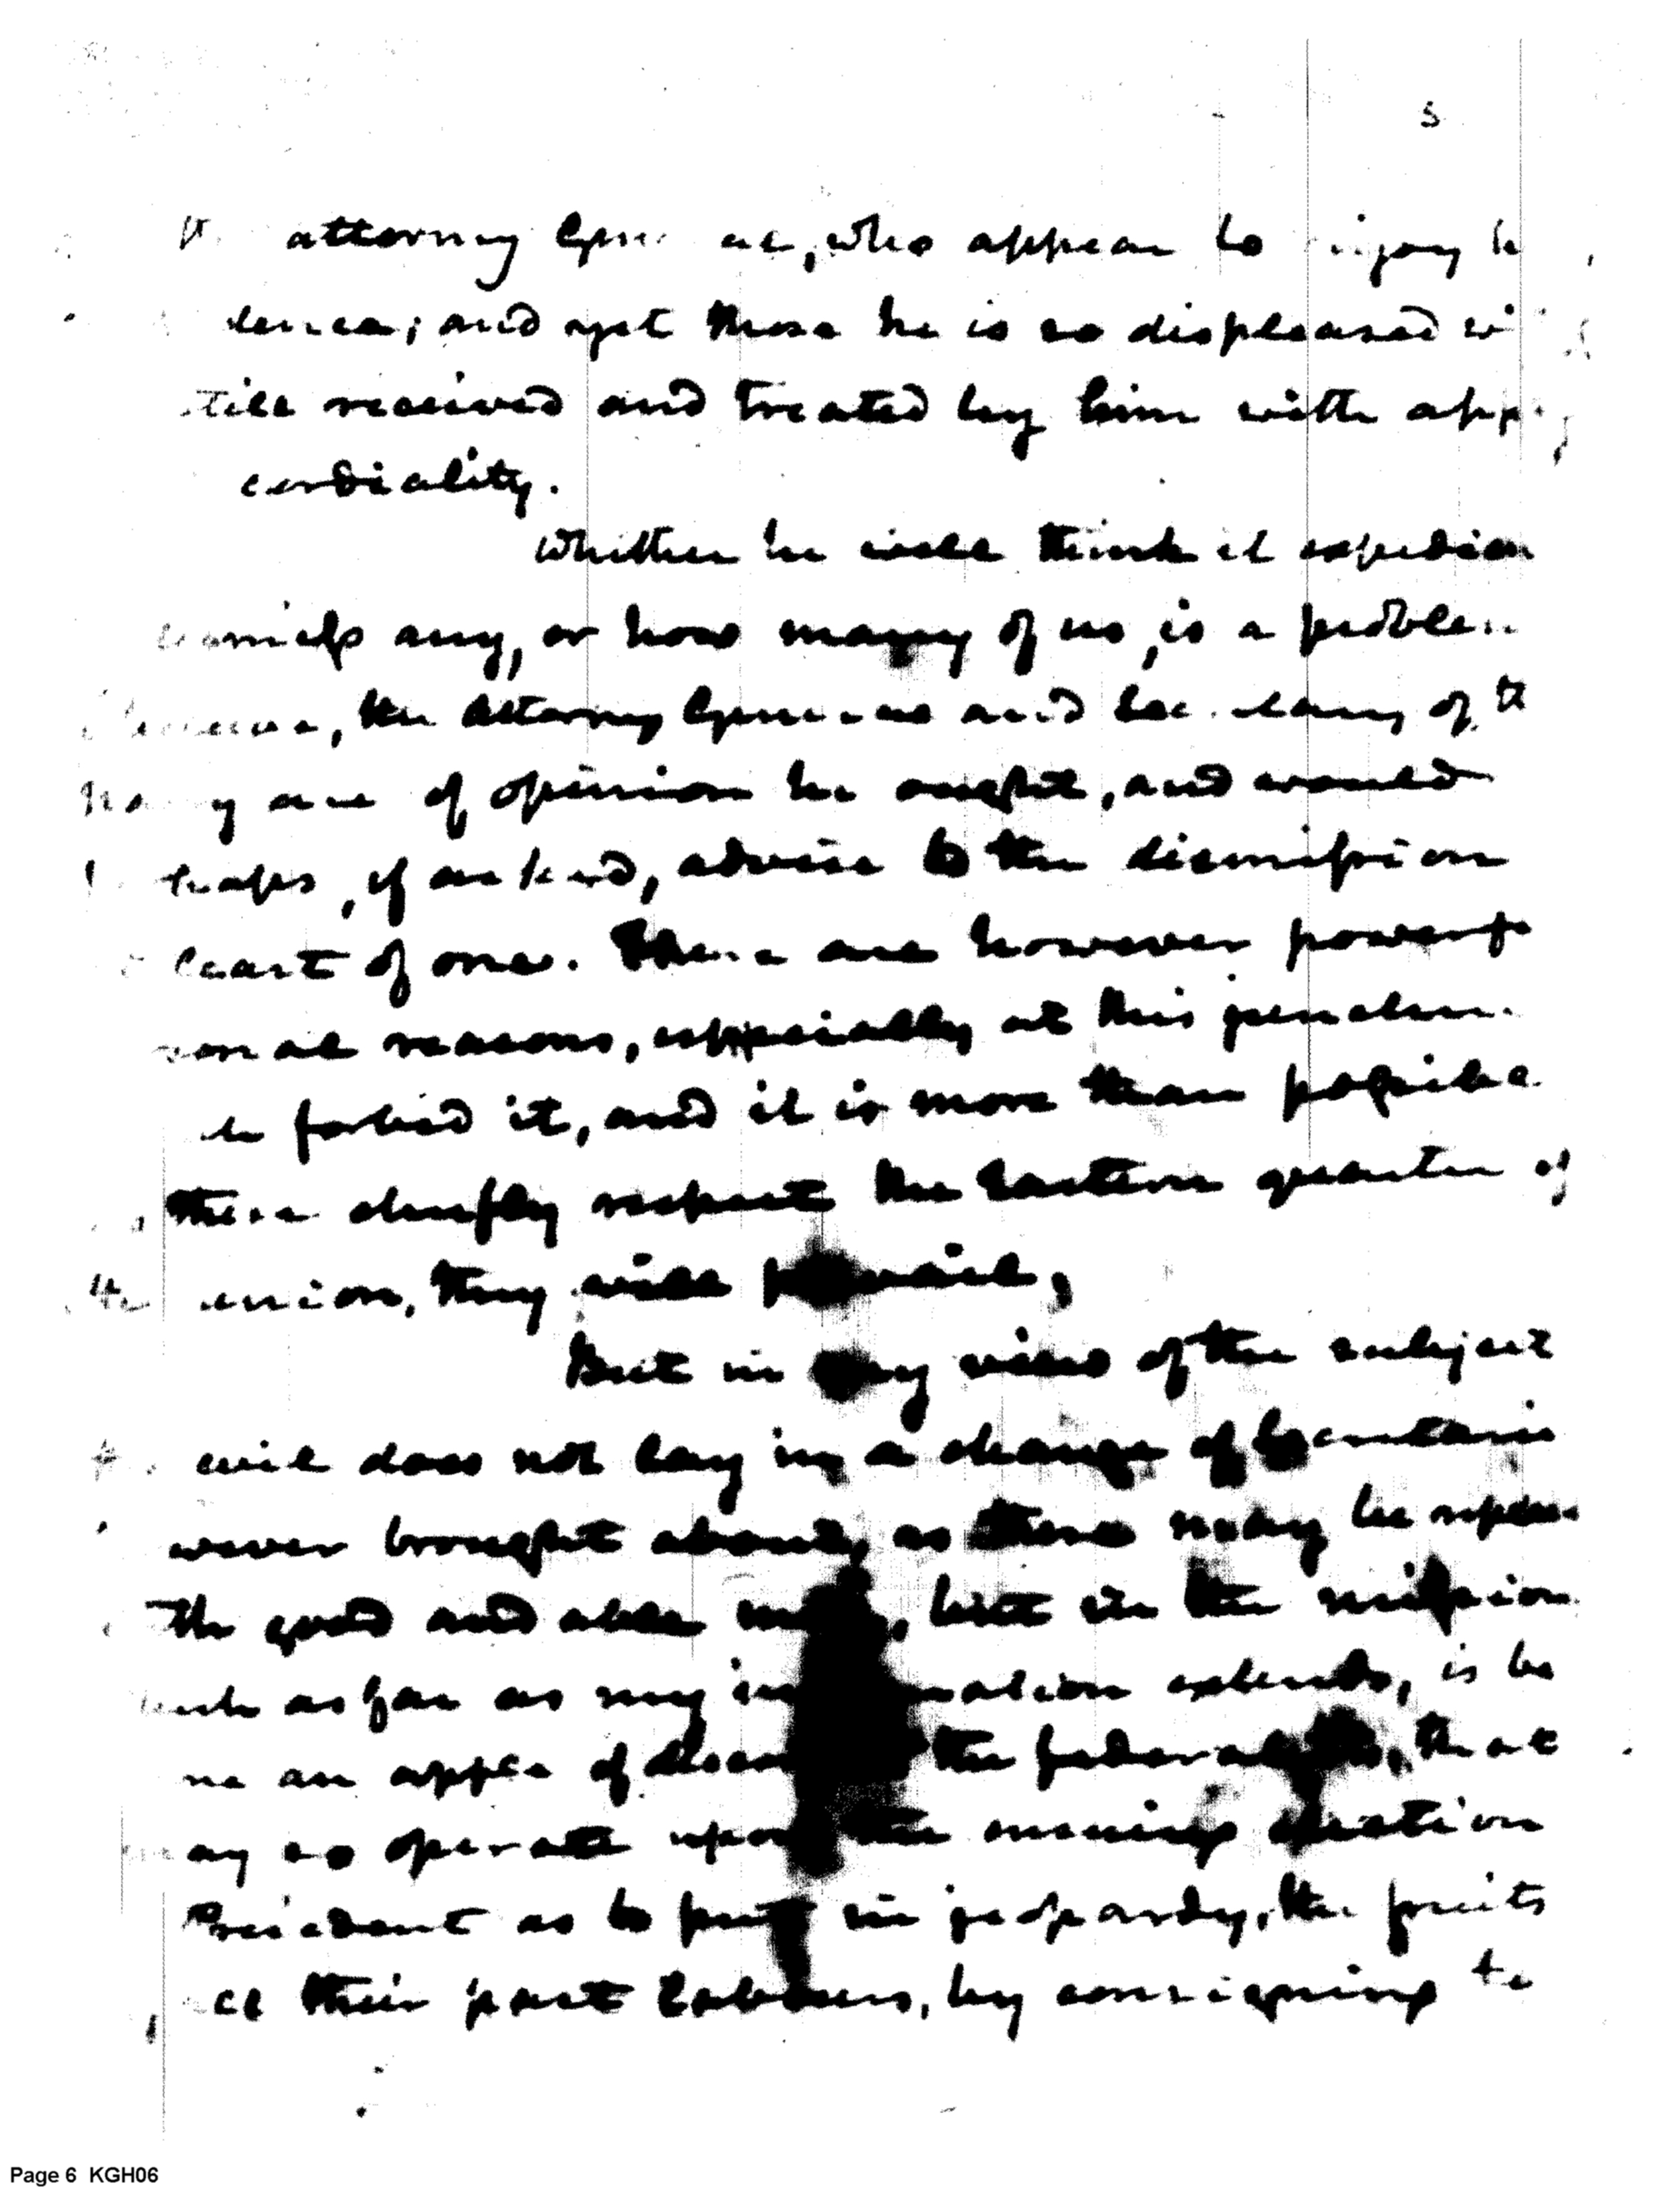 5
attorney General, who appear to enjoy
and yet those he is so displeased
still received and treated by him with
cordiality.
Whether he will think it expedient
dismiss any, or how many of us, is a problem
the attorney General and Secretary of the
Navy are of opinion he ought, and would
perhaps, if asked, advise to the dismission
least of one. There are however powerful
reasons, especially at this
forbid it, and it is more than possible
these chiefly respect the Eastern quarter of
the union, they will prevail.
But in my view of the subject
the evil does not lay in a change of Secretaries
however brought about, as these may be
with good and able men, but in the mission
which as far as my information extends, is
me an apple of discord to the federalists, that
may so operate upon the ensuing election
President as to put in jeopardy, the fruits
all their past labours, by consigning to
Page 6 KGH06